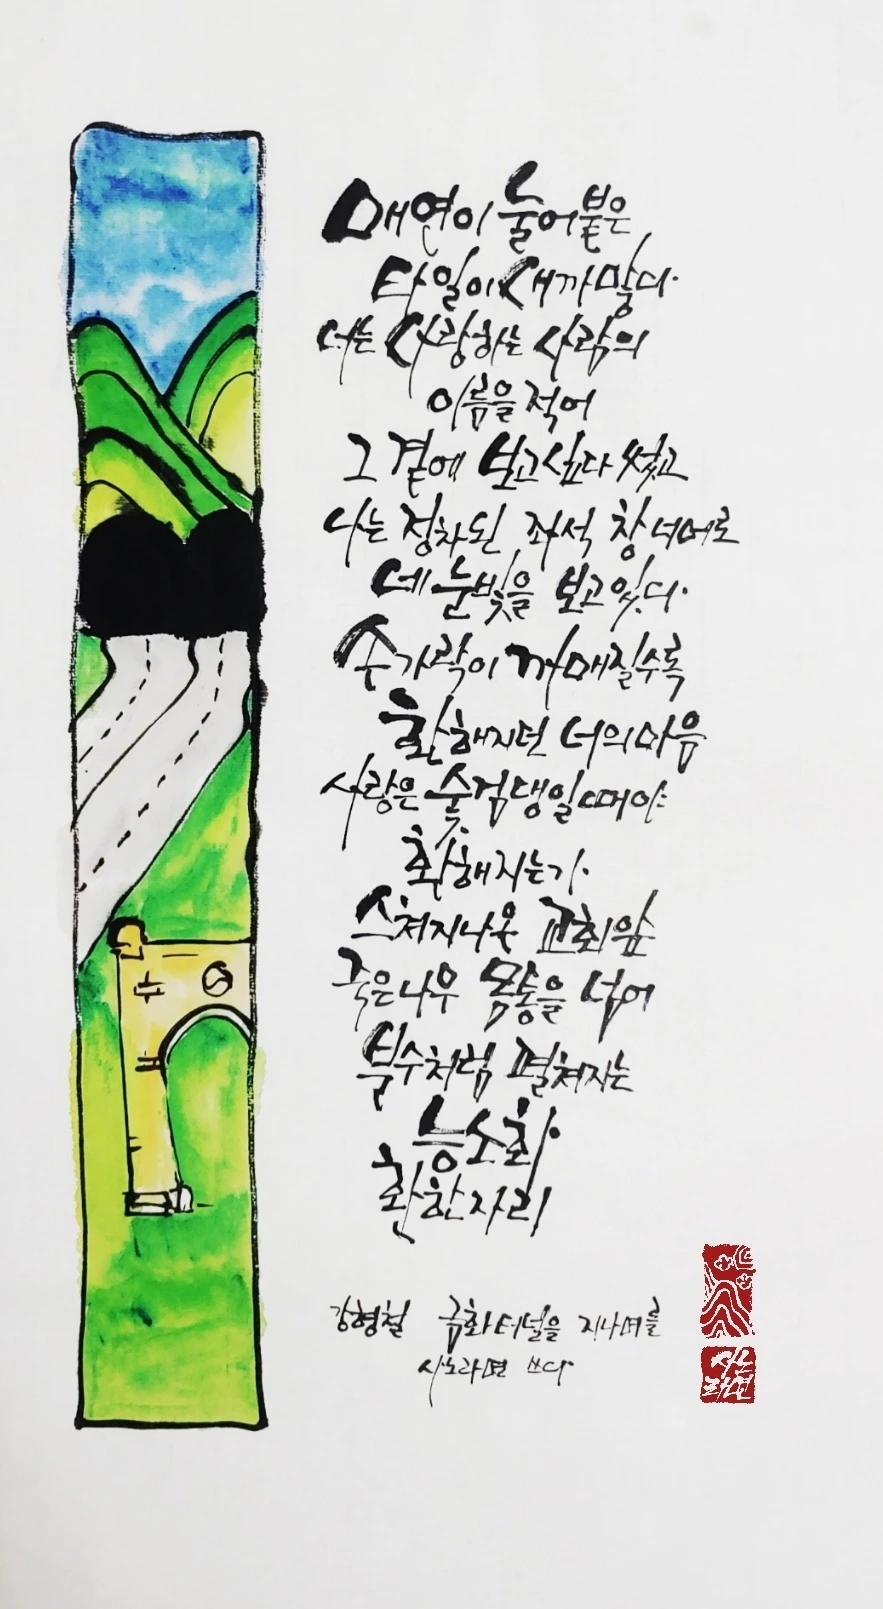 매연이 눌어붙은
타일이 새까맣다.
너는 사랑하는 사람의
이름을 적어
그 곁에 보고싶다 썼고
나는 정차된 좌석 창 너머로
네 눈빛을 보고 있다.
손가락이 까매질수록
환해지던 너의 마음
사랑은 숯검댕일 때야
환해지는가.
스쳐지나온 교회 앞
죽은 나무 몸통을 넘어
분수처럼 펼쳐지는
능소화
환한 자리
강형철 금화터널을 지나며를
사노라면 쓰다
사노
라면